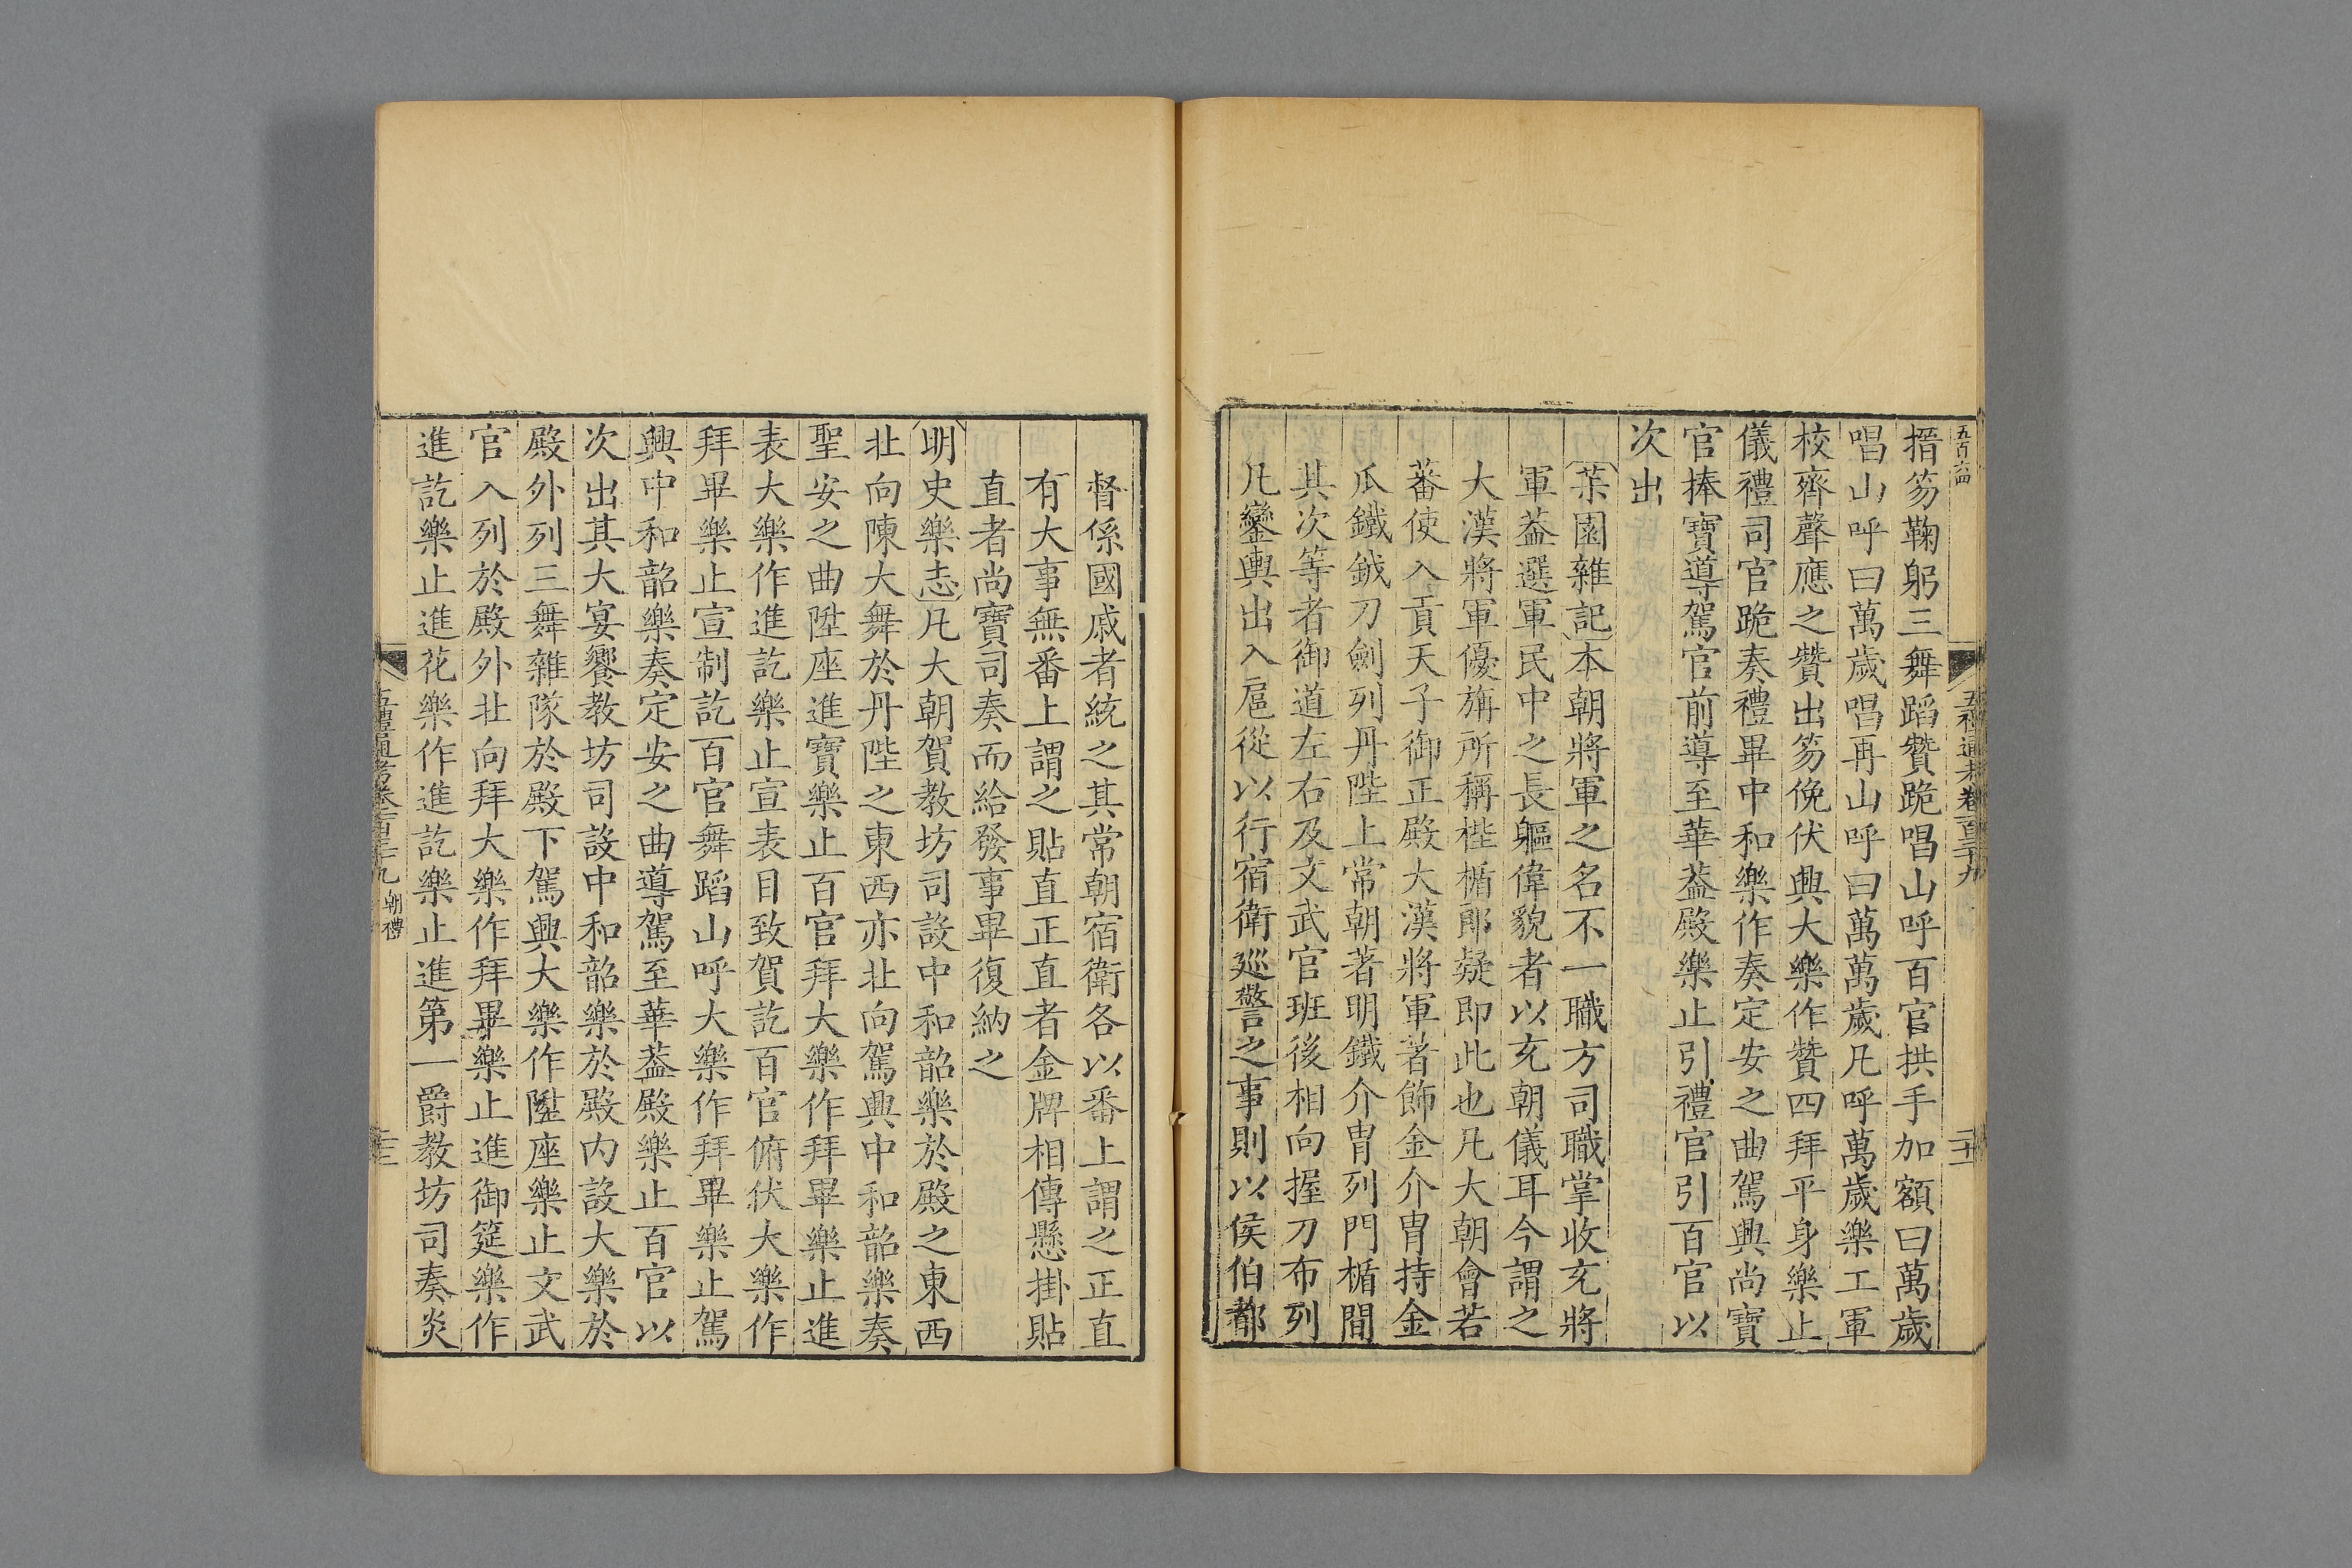 五百六四
搢笏鞠躬三舞蹈贊跪唱山呼百官拱手加額曰萬歲
唱山呼曰萬歲唱再山呼曰萬萬歲凡呼萬歲樂工軍
校齊聲應之贊出笏俛伏興大樂作贊四拜平身樂止
儀禮司官跪奏禮畢中和樂作奏定安之曲駕興尚寶
官捧寶導駕官前導至華蓋殿樂止引禮官引百官以
次出
菽園雜記本朝將軍之名不一職方司職掌收充將
軍蓋選軍民中之長軀偉貌者以充朝儀耳今謂之
大漢將軍優旃所稱陛楯郎疑即此也凡大朝會若
蕃使入貢天子御正殿大漢將軍著飾金介胄持金
瓜鐵鉞刀劍列丹陛上常朝著明鐵介胄列門楯間
其次等者御道左右及文武官班後相向握刀布列
凡鑾輿出入扈從以行宿衛巡警之事則以侯伯都
督係國戚者統之其常朝宿衛各以番上謂之正直
有大事無番上謂之貼直正直者金牌相傳懸掛貼
直者尚寶司奏而給發事畢復納之
明史樂志凡大朝賀教坊司設中和韶樂於殿之東西
北向陳大舞於丹陛之東西亦北向駕興中和韶樂奏
聖安之曲陞座進寶樂止百官拜大樂作拜畢樂止進
表大樂作進訖樂止宣表目致賀訖百官俯伏大樂作
拜畢樂止宣制訖百官舞蹈山呼大樂作拜畢樂止駕
興中和韶樂奏定安之曲導駕至華蓋殿樂止百官以
次出其大宴饗教坊司設中和韶樂於殿內設大樂於
殿外列三舞雜隊於殿下駕興大樂作陞座樂止文武
官入列於殿外北向拜大樂作拜畢樂止進御筵樂作
進訖樂止進花樂作進訖樂止進第一爵教坊司奏炎
五禮通考卷一百三十九 朝禮